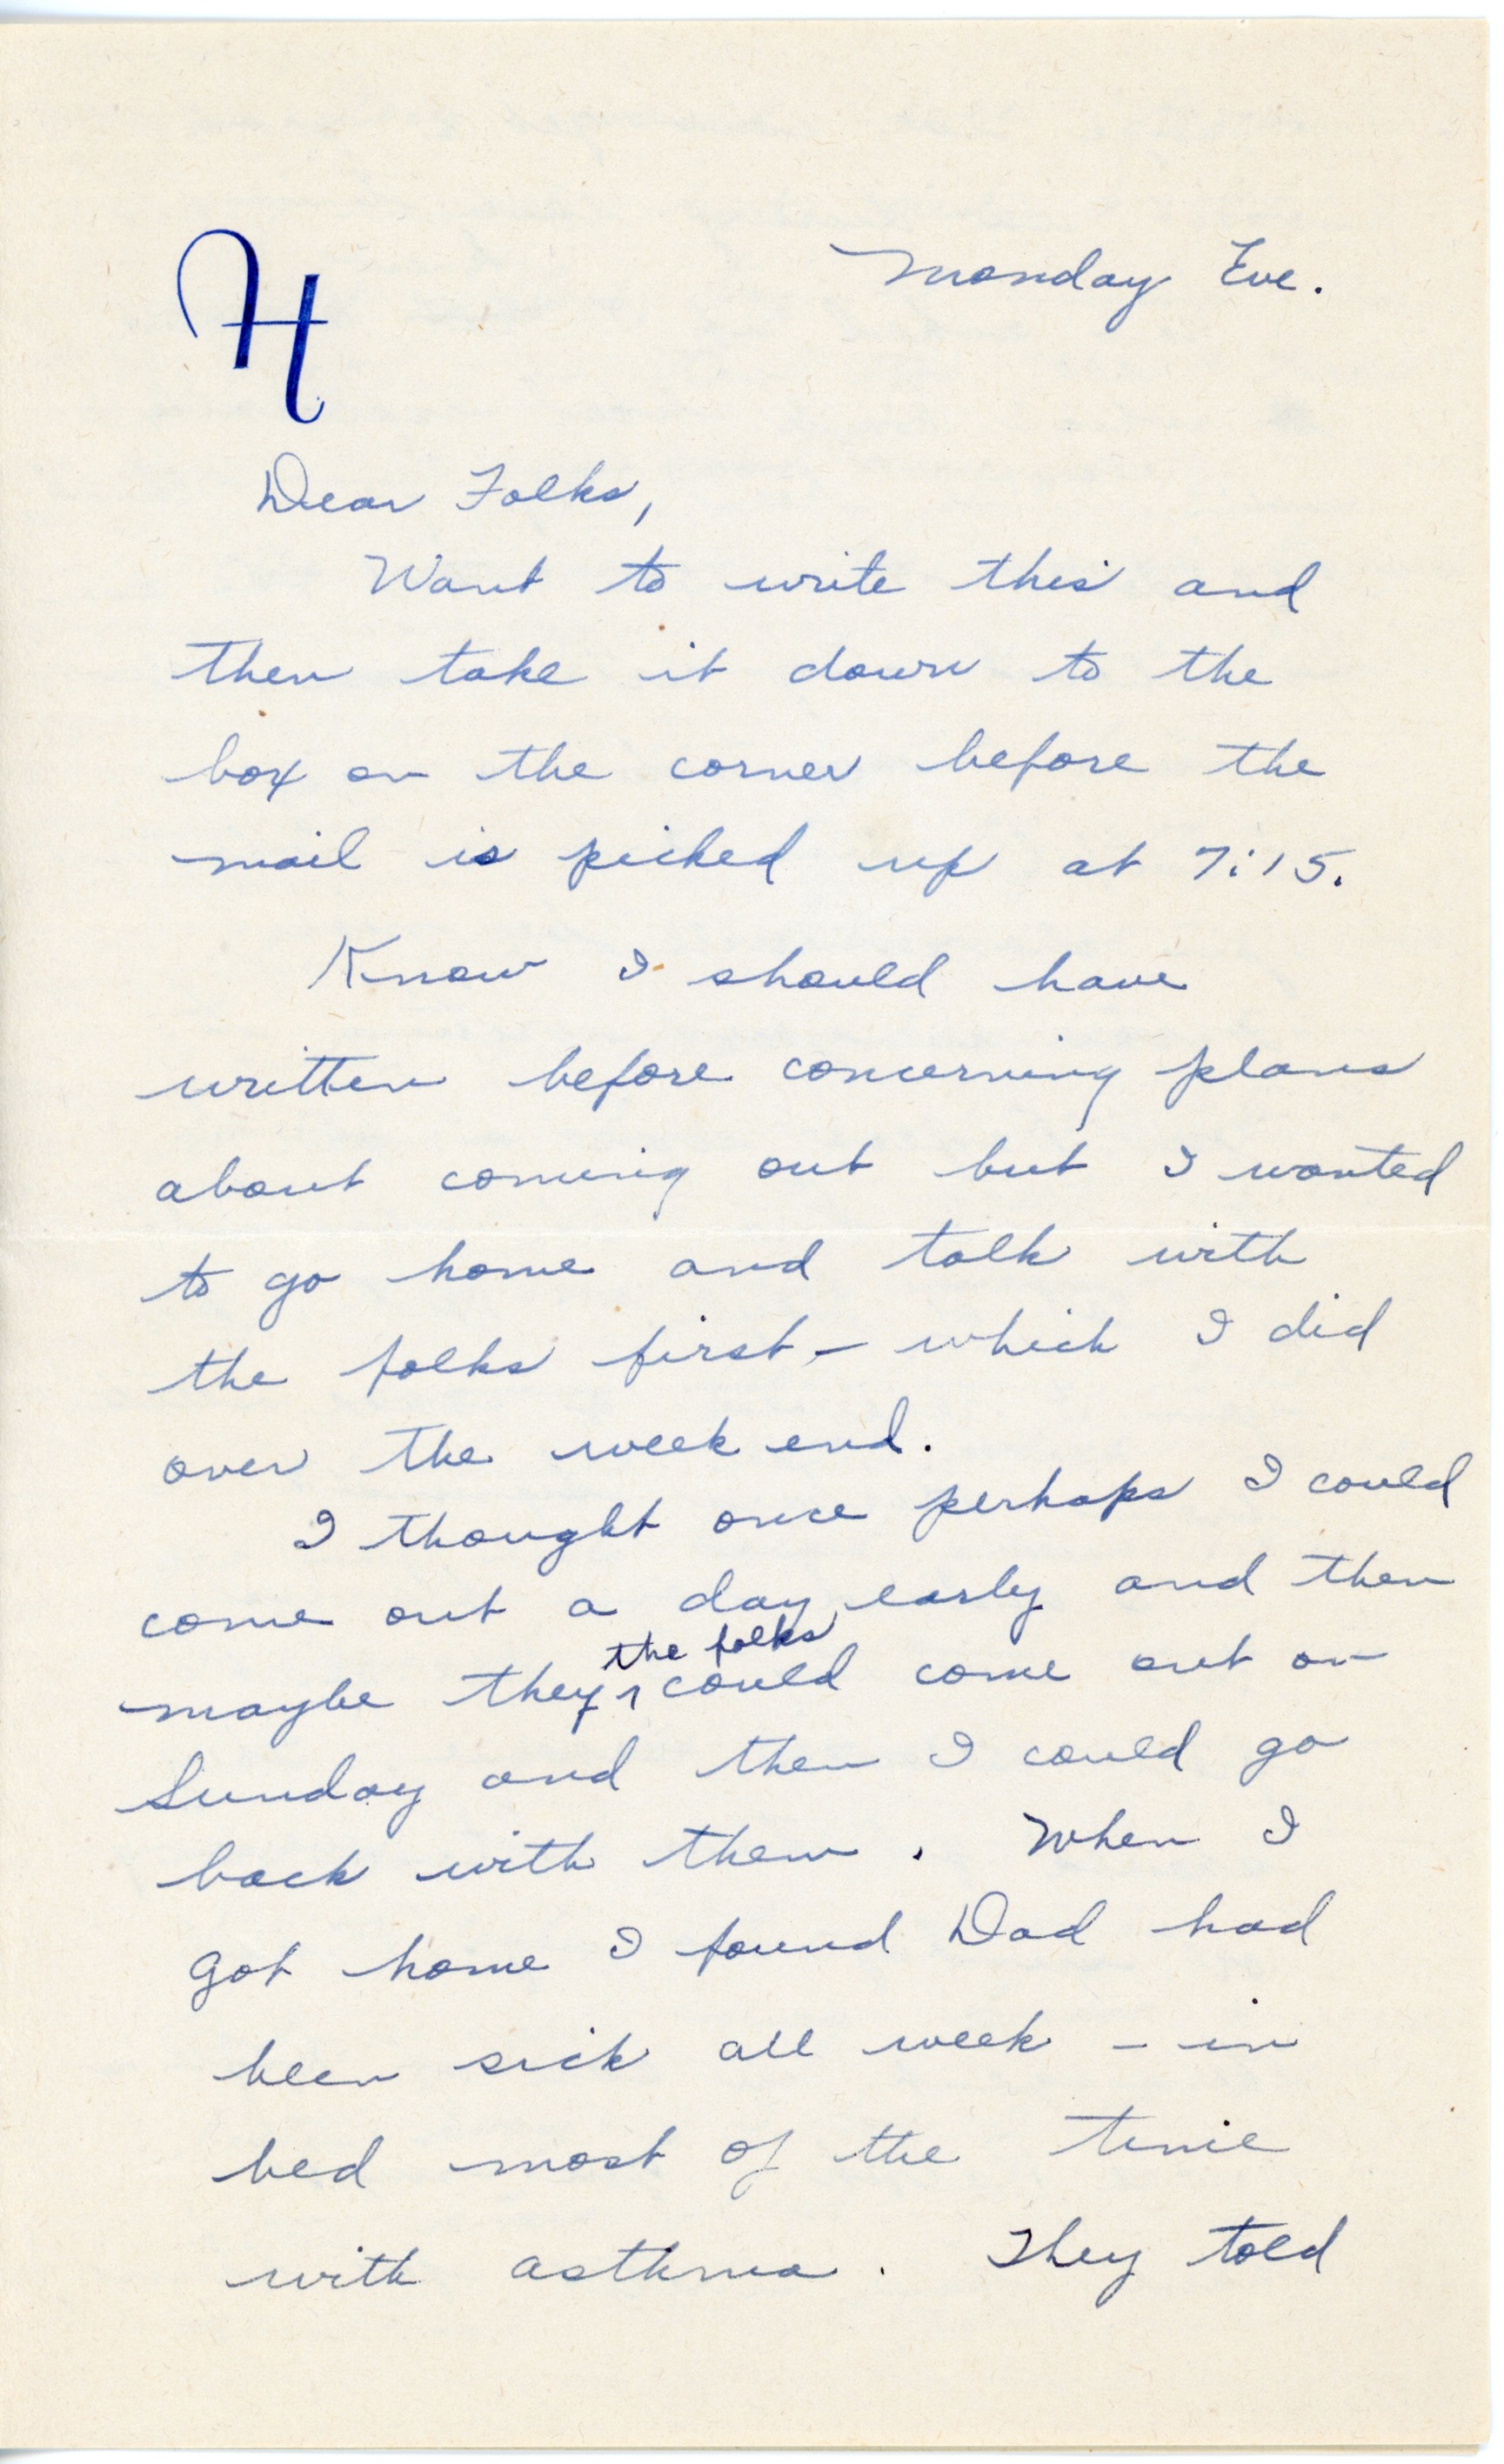 H
Monday Eve.
Dear Folks,
Want to write this and
then take it down to the
box on the corner before the
mail is picked up at 7:15.
Know I should have
written before concerning plans
about coming out but I wanted
to go home and talk with
the folks first – which I did
over the week end.
I thought once perhaps I could
come out a day early and then
the folks
maybe they ^ could come out on
Sunday and then I could go
back with them. When I
got home I found Dad had
been sick all week – in
bed most of the time
with asthma. They told